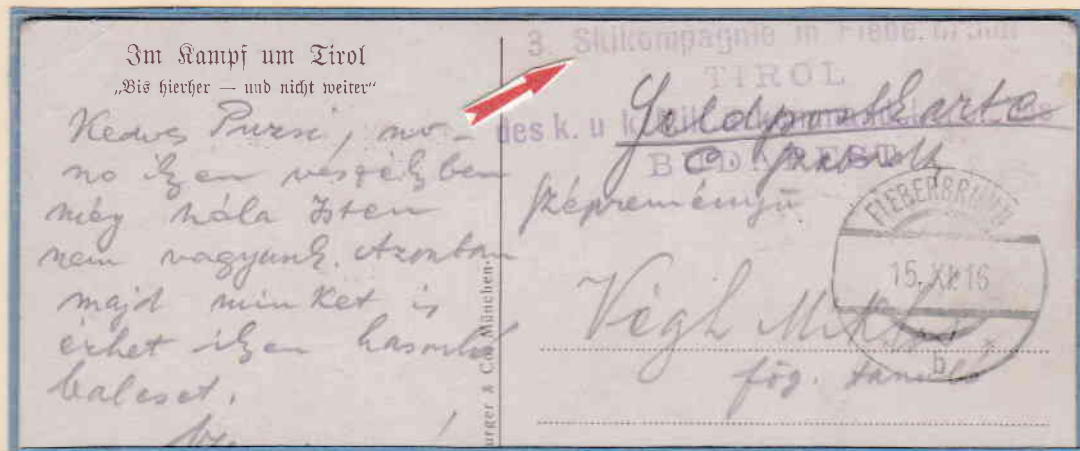 Im Kampf um Tirol
„Bis hierher — und nicht weiter“
Kedves Purzi, no-
no ilyen veszélyben
még hála Isten
nem vagyunk. Azonban
majd minket is
érhet ilyen hasonló
baleset.
urger & Co. München.
3. Skikompagnie in
TIROL
des k. u. k.
BUDAPEST
Feldpostkarte
szépreményü
Végh Miklós
főg. tanuló
FIEBERBRUNN
15. XII 16
b